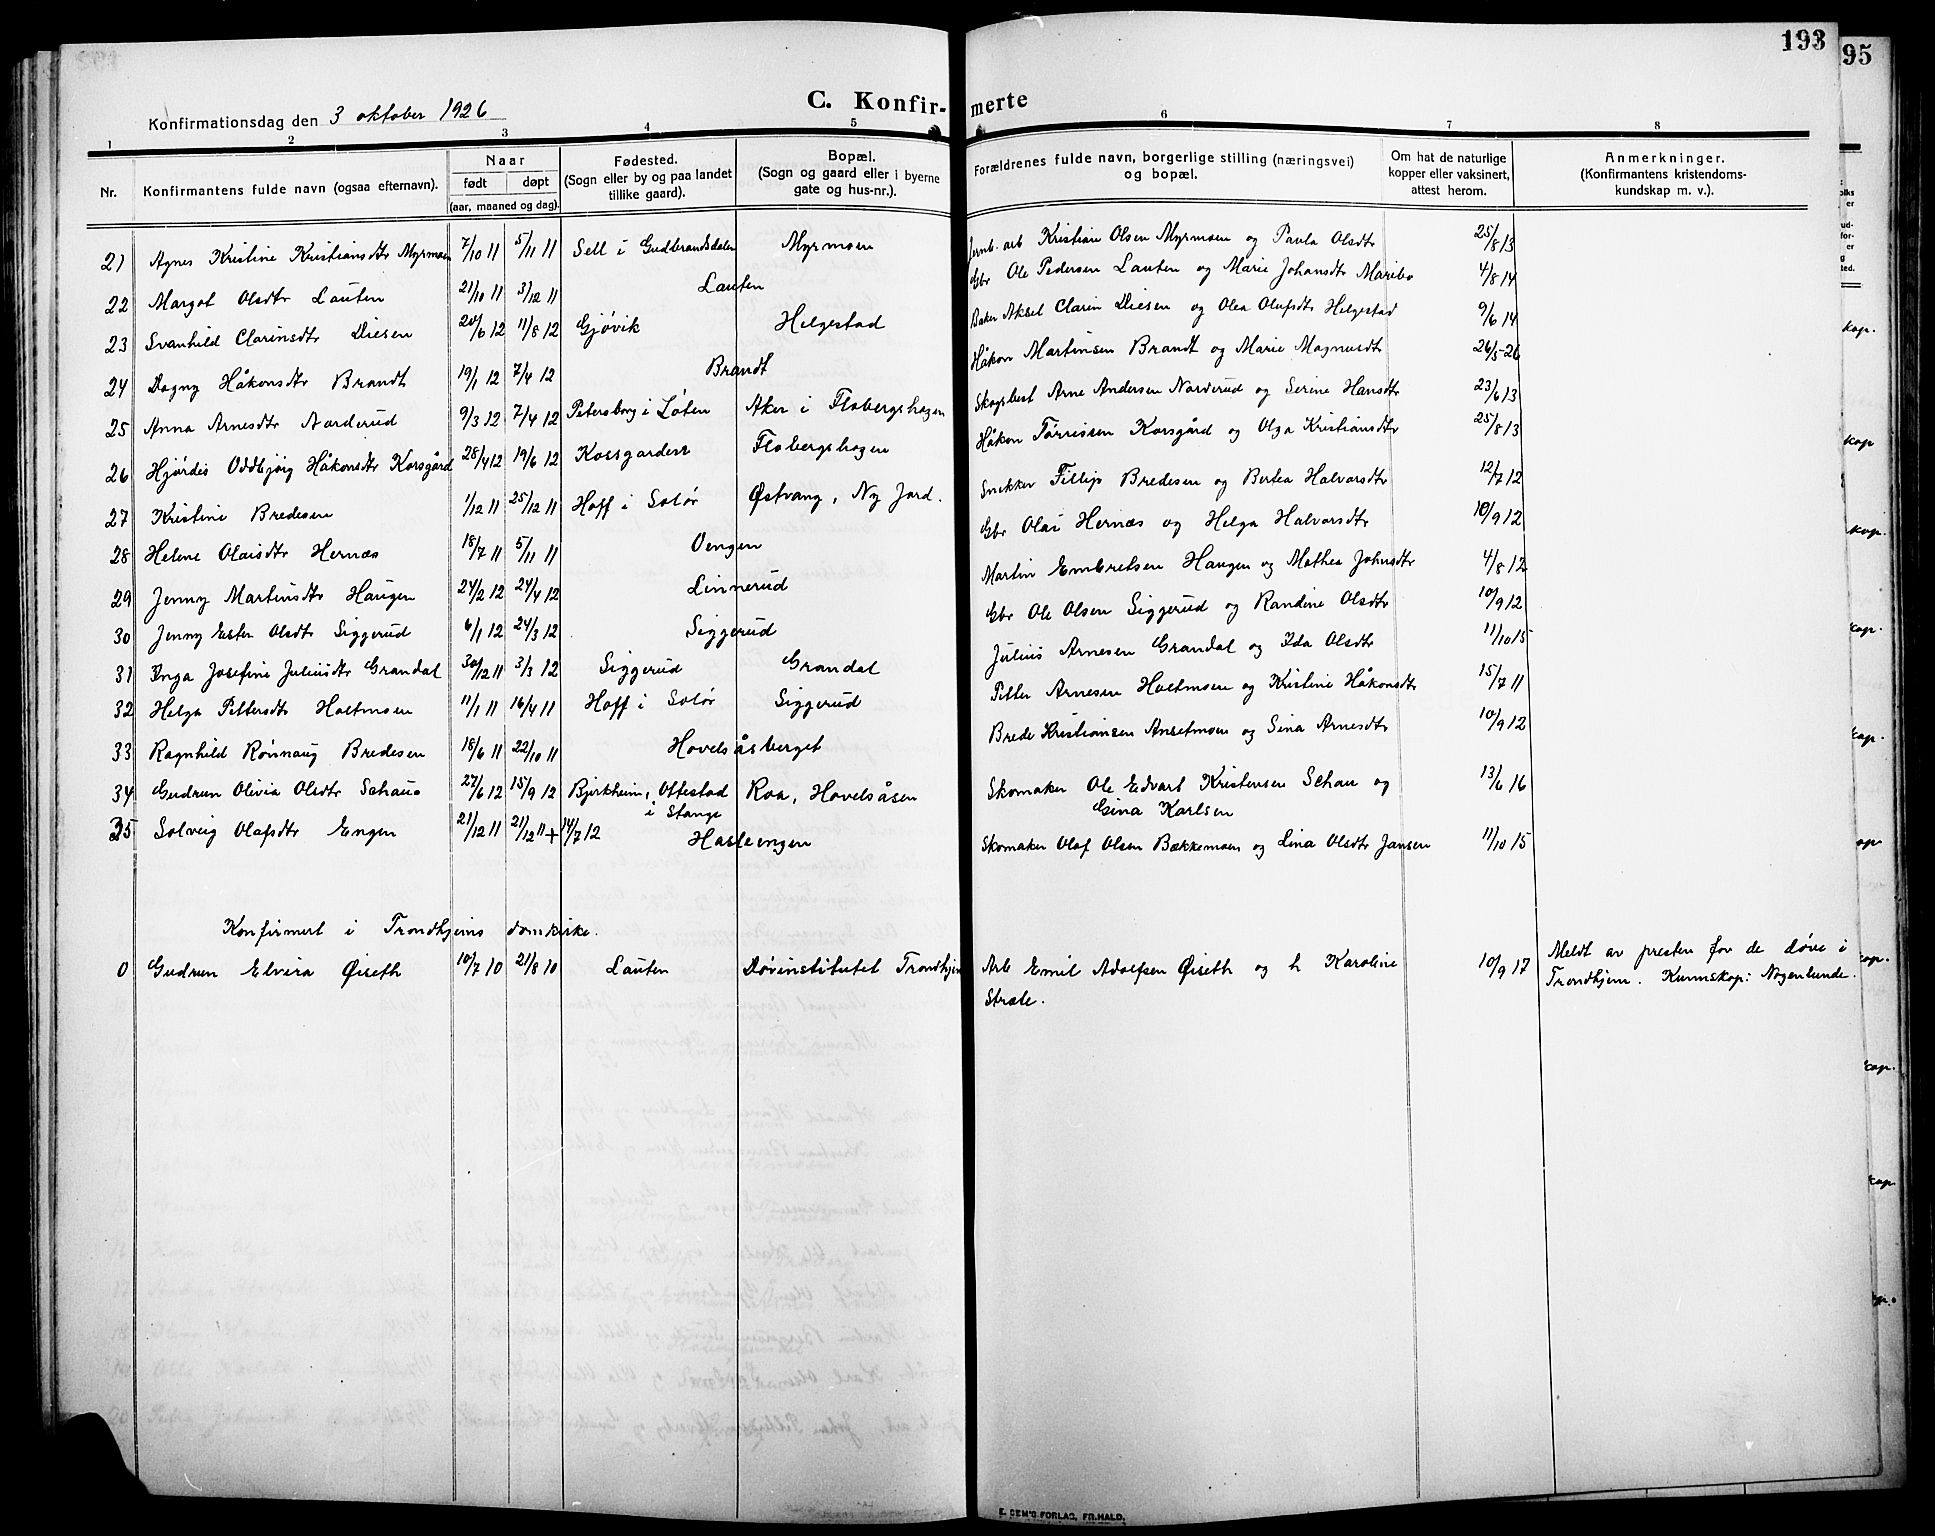 193
95
C. Konfir- merte
Konfirmationsdag den 3 oktober 1926
1 2 3 4 5 6 7 8
Nr. Konfirmantens fulde navn (ogsaa efternavn). Naar født døpt (aar, maaned og dag). Fødested. (Sogn eller by og paa landet tillike gaard). Bopæl. (Sogn og gaard eller i byerne gate og hus-nr.). Forældrenes fulde navn, borgerlige stilling (næringsvei) og bopæl. Om hat de naturlige kopper eller vaksinert, attest herom. Anmerkninger. (Konfirmantens kristendomskundskap m. v.).
21 Agnes Kristine Kristiansdtr Myrmoen 7/10 11 5/11 11 Sell i Gudbrandsdalen Myrmoen Jernb. arb Kristian Olsen Myrmoen og Paula Olsdtr 25/8 13
22 Margot Olsdtr Lauten 21/10 11 3/12 11 Lauten Gbr Ole Pedersen Lauten og Marie Johansdtr Maribo 4/8 14
23 Svanhild Clarinsdtr Diesen 20/6 12 11/8 12 Gjøvik Helgestad Baker Aksel Clarin Diesen og Olea Olufsdtr Helgestad 9/6 14
24 Dagny Håkonsdtr Brandt 19/1 12 7/4 12 Brandt Håkon Martinsen Brandt og Marie Magnusdtr 26/5-26
25 Anna Arnesdtr Norderud 9/3 12 7/4 12 Petersborg i Løten Aker i Flobergshagen Skogsbest Arne Andersen Norderud og Serine Hansdtr 23/6 13
26 Hjørdis Oddbjørg Håkonsdtr Korsgård 28/4 12 19/6 12 Korsgarden Flobergshagen Håkon Tørrissen Korsgård og Olga Kristiansdtr 25/8 13
27 Kristine Bredesen 1/12 11 25/12 11 Hoff i Solør Østvang, Ny Jord. Snekker Fillip Bredesen og Bertea Halvorsdtr 12/7 12
28 Helene Olaisdtr Hernæs 18/7 11 5/11 11 Vengen Gbr Olai Hernæs og Helga Halvorsdtr 10/9 12
29 Jenny Martinsdtr Haugen 24/2 12 24/4 12 Linnerud Martin Embretsen Haugen og Mathea Johnsdtr 4/8 12
30 Jenny Ester Olsdtr Siggerud 6/1 12 24/3 12 Siggerud Gbr Ole Olsen Siggerud og Randine Olsdtr 10/9 12
31 Inga Josefine Juliusdtr Grandal 30/12 11 3/3 12 Siggerud Grandal Julius Arnesen Grandal og Ida Olsdtr 11/10 15
32 Helga Pettersdtr Holtmoen 11/1 11 16/4 11 Hoff i Solør Siggerud Petter Arnesen Holtmoen og Kristine Håkonsdtr 15/7 11
33 Ragnhild Rønnaug Bredesen 18/6 11 22/10 11 Hovelsåsberget Brede Kristiansen Ansetmoen og Sina Arnesdtr 10/9 12
34 Gudrun Olivia Olsdtr Schau 27/6 12 15/9 12 Bjerkheim, Ottestad i Stange Roa, Hovelsåsen Skomaker Ole Edvart Kristensen Schau og Gina Karlsen 13/6 16
35 Solveig Olafsdtr Engen 21/12 11 21/12 11 + 14/7 12 Hasleengen Skomaker Olaf Olsen Bækkemoen og Lina Olsdtr Jansen 11/10 15
Konfirmert i Trondhjems domkirke.
0 Gudrun Elvira Øiseth 10/7 10 21/8 10 Lauten Døvinstitutet Trondhjem Arb Emil Adolfsen Øiseth og h Karoline Stræte. 10/9 17 Meldt av presten for de døve i Trondhjem. Kunnskap: Nogenlunde.
kop.
kop
kop.
kop.
kop.
kop.
kop.
kop.
kop.
E. SEM'S FORLAG, FR.HALD.